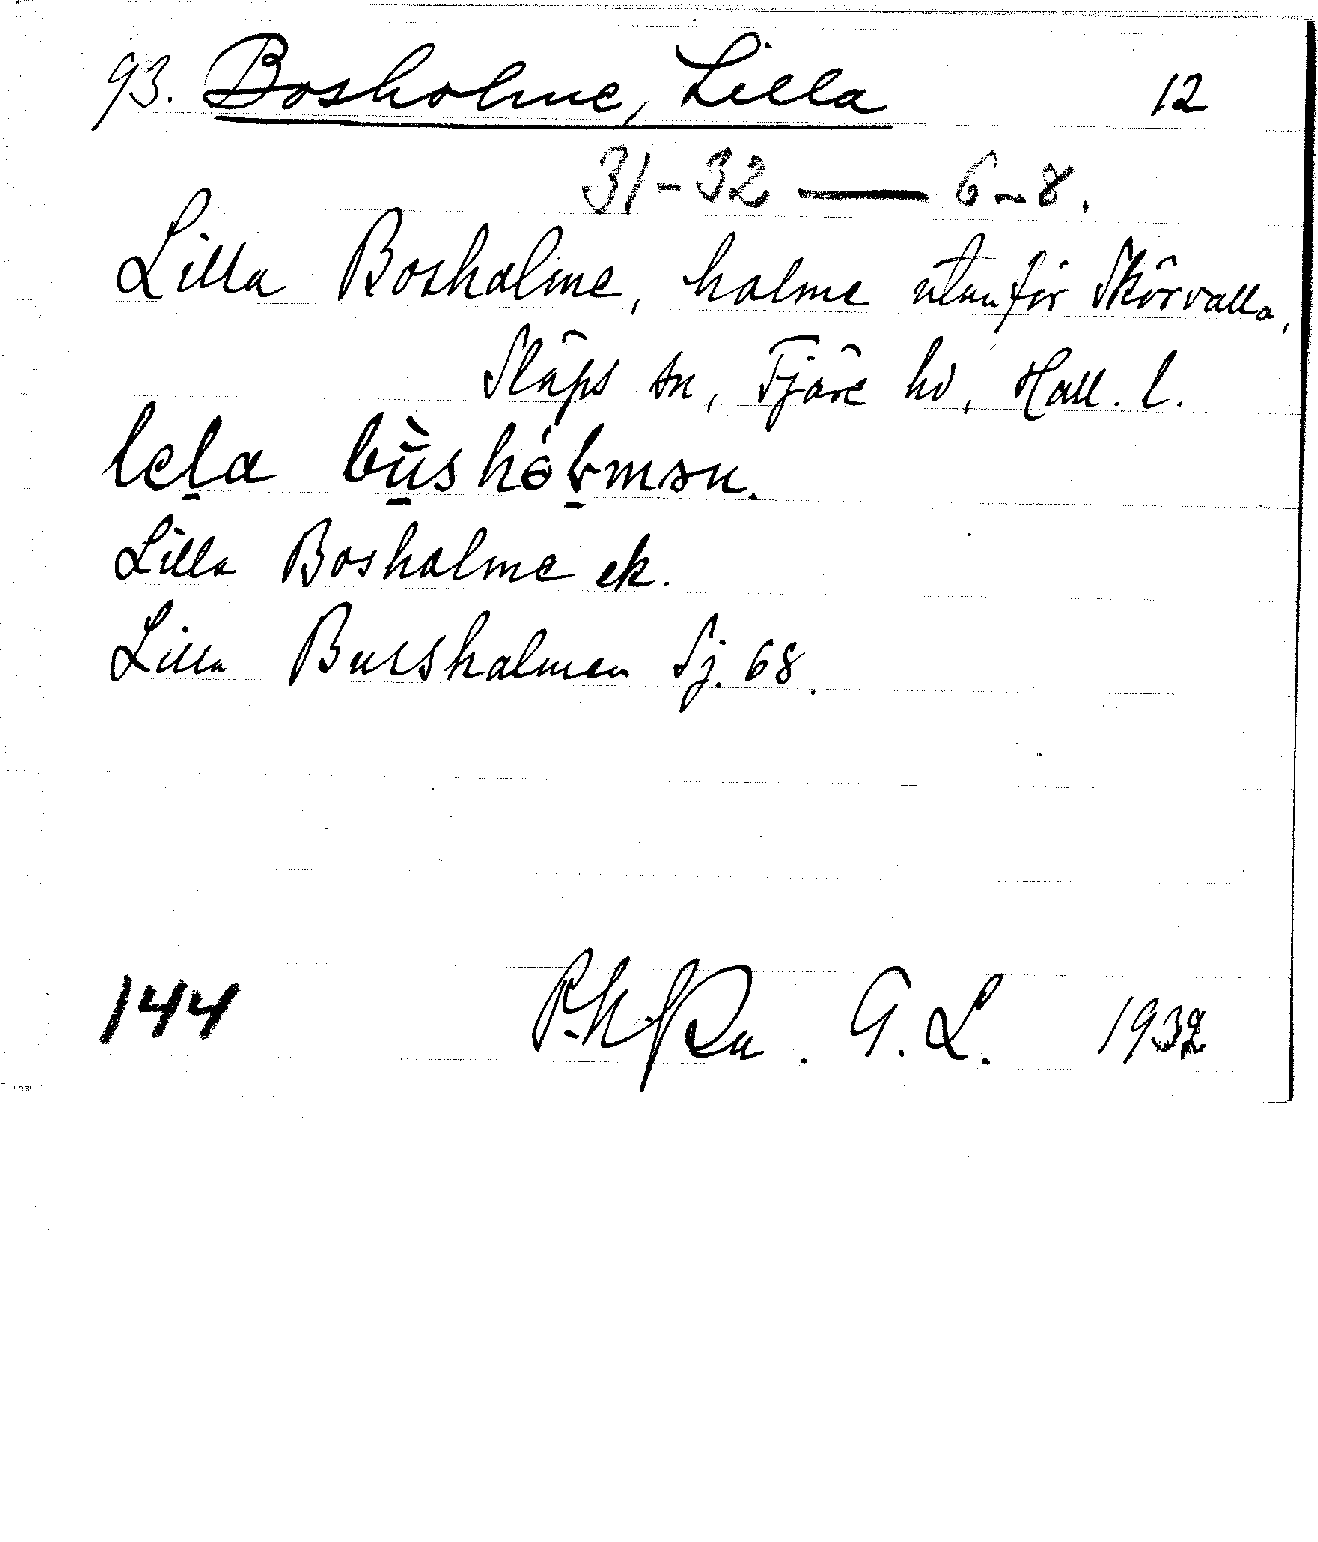 93. Bosholme, Lilla 12
31-32 — 6-8.
Lilla Bosholme, holme utanför Skörvalla,
Släps sn, Fjäre hd, Hall. l.
Lilla Bosholme ek.
Lilla Bussholmen Sj. 68.
144 G. L. 1932